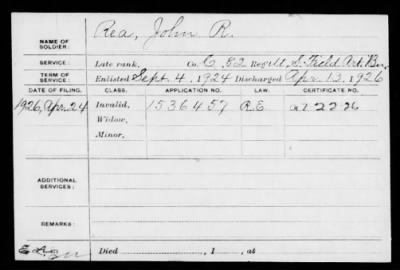 NAME OF SOLDIER: Rea, John R.
SERVICE: Late rank, Co. C, 82 Reg't U.S. Field Art. Bn.
TERM OF SERVICE: Enlisted Sept. 4, 1924 Discharged Apr. 13, 1926
DATE OF FILING. CLASS. APPLICATION NO. LAW. CERTIFICATE NO.
1926, Apr. 24 Invalid, 1536457 R.E.
Widow,
Minor,
ADDITIONAL SERVICES:
REMARKS:
Died , 1 , at